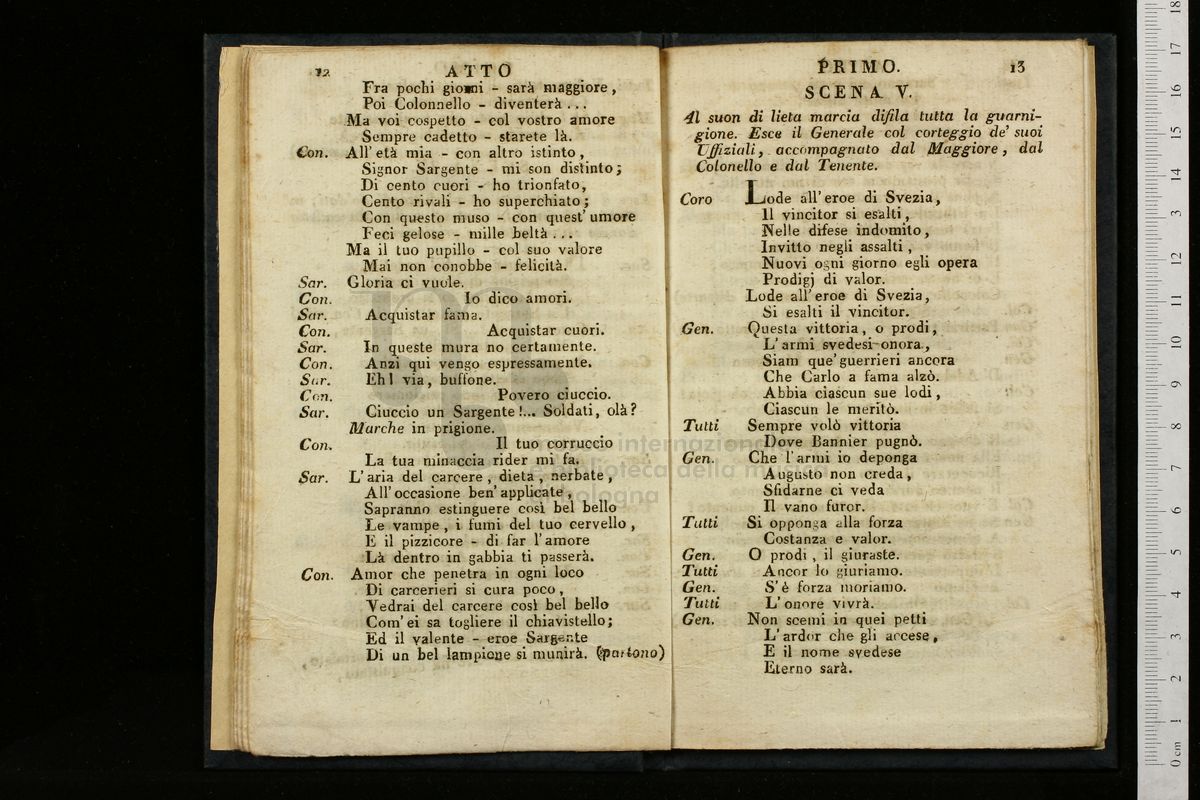 12 ATTO
Fra pochi giorni - sarà maggiore,
Poi Colonnello - diventerà...
Ma voi cospetto - col vostro amore
Sempre cadetto - starete là.
Con. All'età mia - con altro istinto,
Signor Sargente - mi son distinto;
Di cento cuori - ho trionfato,
Cento rivali - ho superchiato;
Con questo muso - con quest'umore
Feci gelose - mille beltà...
Ma il tuo pupillo - col suo valore
Mai non conobbe - felicità.
Sar. Gloria ci vuole.
Con. Io dico amori.
Sar. Acquistar fama.
Con. Acquistar cuori.
Sar. In queste mura no certamente.
Con. Anzi qui vengo espressamente.
Sar. Eh! via, buffone.
Con. Povero ciuccio.
Sar. Ciuccio un Sargente!... Soldati, olà?
Marche in prigione.
Con. Il tuo corruccio
La tua minaccia rider mi fa.
Sar. L'aria del carcere, dieta, nerbate,
All'occasione ben'applicate,
Sapranno estinguere così bel bello
Le vampe, i fumi del tuo cervello,
E il pizzicore - di far l'amore
Là dentro in gabbia ti passerà.
Con. Amor che penetra in ogni loco
Di carcerieri si cura poco,
Vedrai del carcere così bel bello
Com'ei sa togliere il chiavistello;
Ed il valente - eroe Sargente
Di un bel lampione si munirà. (partono)
PRIMO. 13
SCENA V.
Al suon di lieta marcia difila tutta la guarni-
gione. Esce il Generale col corteggio de' suoi
Uffiziali, accompagnato dal Maggiore, dal
Colonello e dal Tenente.
Coro Lode all'eroe di Svezia,
Il vincitor si esalti,
Nelle difese indomito,
Invitto negli assalti,
Nuovi ogni giorno egli opera
Prodigj di valor.
Lode all'eroe di Svezia,
Si esalti il vincitor.
Gen. Questa vittoria, o prodi,
L'armi svedesi onora,
Siam que' guerrieri ancora
Che Carlo a fama alzò.
Abbia ciascun sue lodi,
Ciascun le meritò.
Tutti Sempre volò vittoria
Dove Bannier pugnò.
Gen. Che l'armi io deponga
Augusto non creda,
Sfidarne ci veda
Il vano furor.
Tutti Si opponga alla forza
Costanza e valor.
Gen. O prodi, il giuraste.
Tutti Ancor lo giuriamo.
Gen. S'è forza moriamo.
Tutti L'onore vivrà.
Gen. Non scemi in quei petti
L'ardor che gli accese,
E il nome svedese
Eterno sarà.